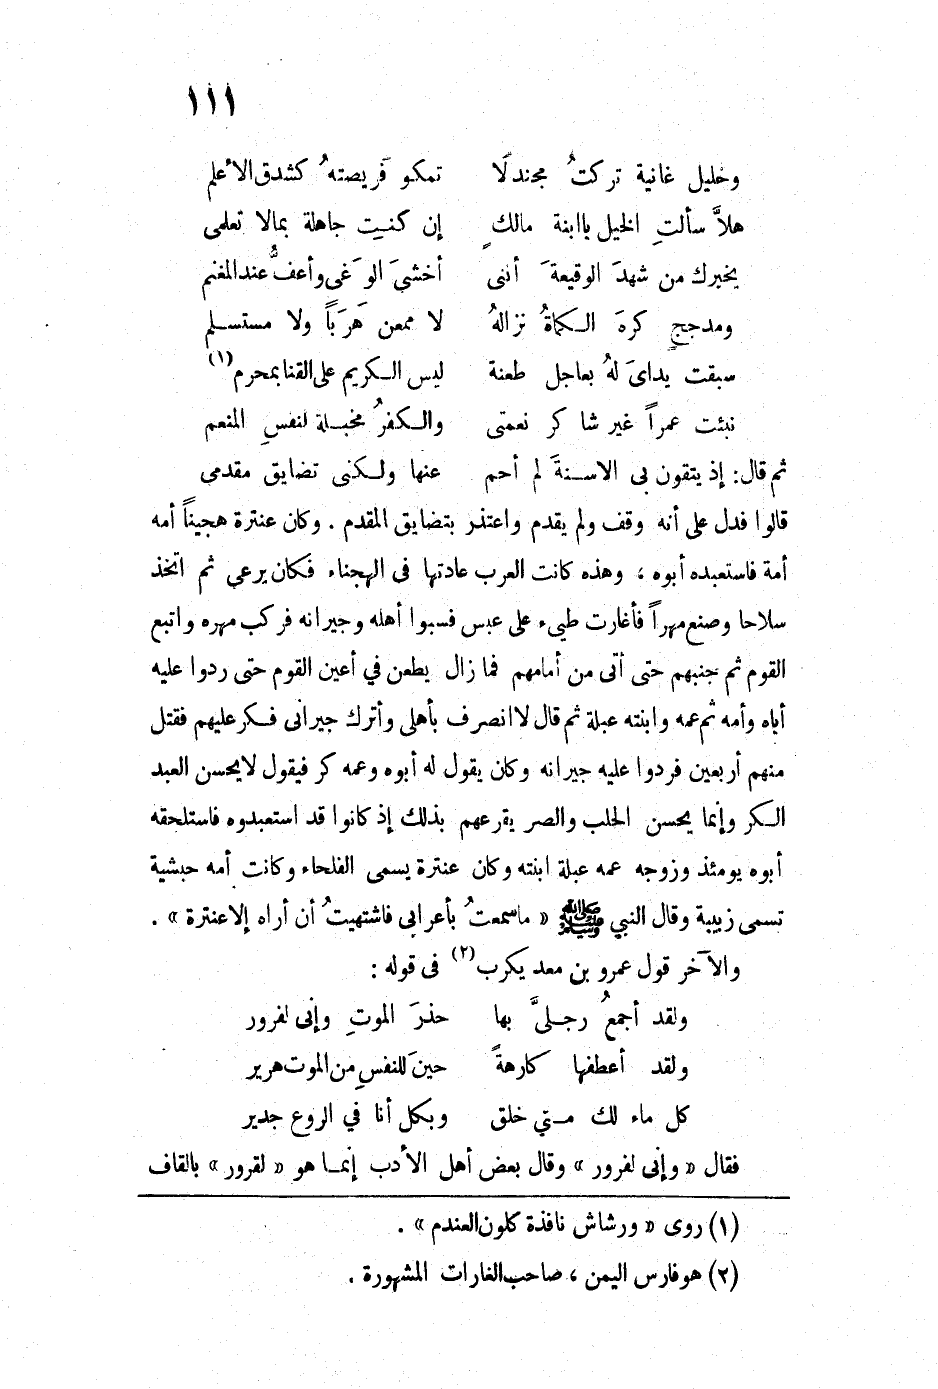 ١١١
وخليل غانية تركتُ مجندلًا تمكو فَريصتهُ كشدق الأعلم
هلاَّ سألتِ الخيل ياابنة مالكٍ إن كنـت جاهلة بمالا تعلمى
يخبرك من شهدَ الوقيعةَ أننى أخشىَ الوَغى وأعفُّ عندالمغنم
ومدججٍ كرهَ الـكماةُ نزالهُ لا ممعن هَرَباً ولا مستسـلم
سبقت يدايَ لهُ بعاجل طعنة ليس الـكريم على القنا بمحرم (١)
نبئت عمراً غير شاكر نعمتى والـكفرُ مخبـلة لنفسِ المنعم
ثم قال: إذ يتقون بى الاسـنةَ لم أحم عنها ولـكنى تضايق مقدمى
قالوا فدل على أنه وقف ولم يقدم واعتذر بتضايق المقدم . وكان عنترة هجيناً أمه
أمة فاستعبده أبوه ، وهذه كانت العرب عادتها فى الهجناء فكان يرعى ثم اتخذ
سلاحا وصنع مهراً فأغارت طيىء على عبس فسبوا أهله وجيرانه فركب مهره واتبع
القوم ثم جنبهم حتى أتى من أمامهم فما زال يطعن في أعين القوم حتى ردوا عليه
أباه وأمه ثم عمه وابنته عبلة ثم قال لاانصرف بأهلى وأترك جيرانى فـكر عليهم فقتل
منهم أربعين فردوا عليه جيرانه وكان يقول له أبوه وعمه كر فيقول لايحسن العبد
الـكر وإنما يحسن الحلب والصر يقرعهم بذلك إذ كانوا قد استعبدوه فاستلحقه
أبوه يومئذ وزوجه عمه عبلة ابنته وكان عنترة يسمى الفلحاء وكانت أمه حبشية
تسمى زبيبة وقال النبي ﷺ « ماسمعتُ بأعرابى فاشتهيتُ أن أراه إلا عنترة » .
والآخر قول عمرو بن معد يكرب (٢) فى قوله :
ولقد أجمعُ رجـلىَّ بها حذرَ الموتِ وإنى لفرور
ولقد أعطفها كارهةً حينَ للنفسِ من الموت هرير
كل ماء لك مـني خلق وبكل أنا في الروع جدير
فقال « وإنى لفرور » وقال بعض أهل الأدب إنمـا هو « لقرور » بالقاف
(١) روى « ورشاش نافذة كلون العندم » .
(٢) هو فارس اليمن ، صاحب الغارات المشهورة .